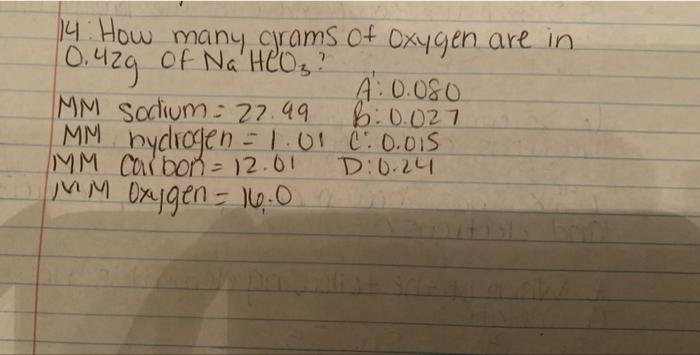 14: How many grams of oxygen are in
0.42g of NaHCO3?
A: 0.080
MM sodium = 22.99 B: 0.027
MM hydrogen = 1.01 C: 0.015
MM carbon = 12.01 D: 0.24
MM oxygen = 16.0